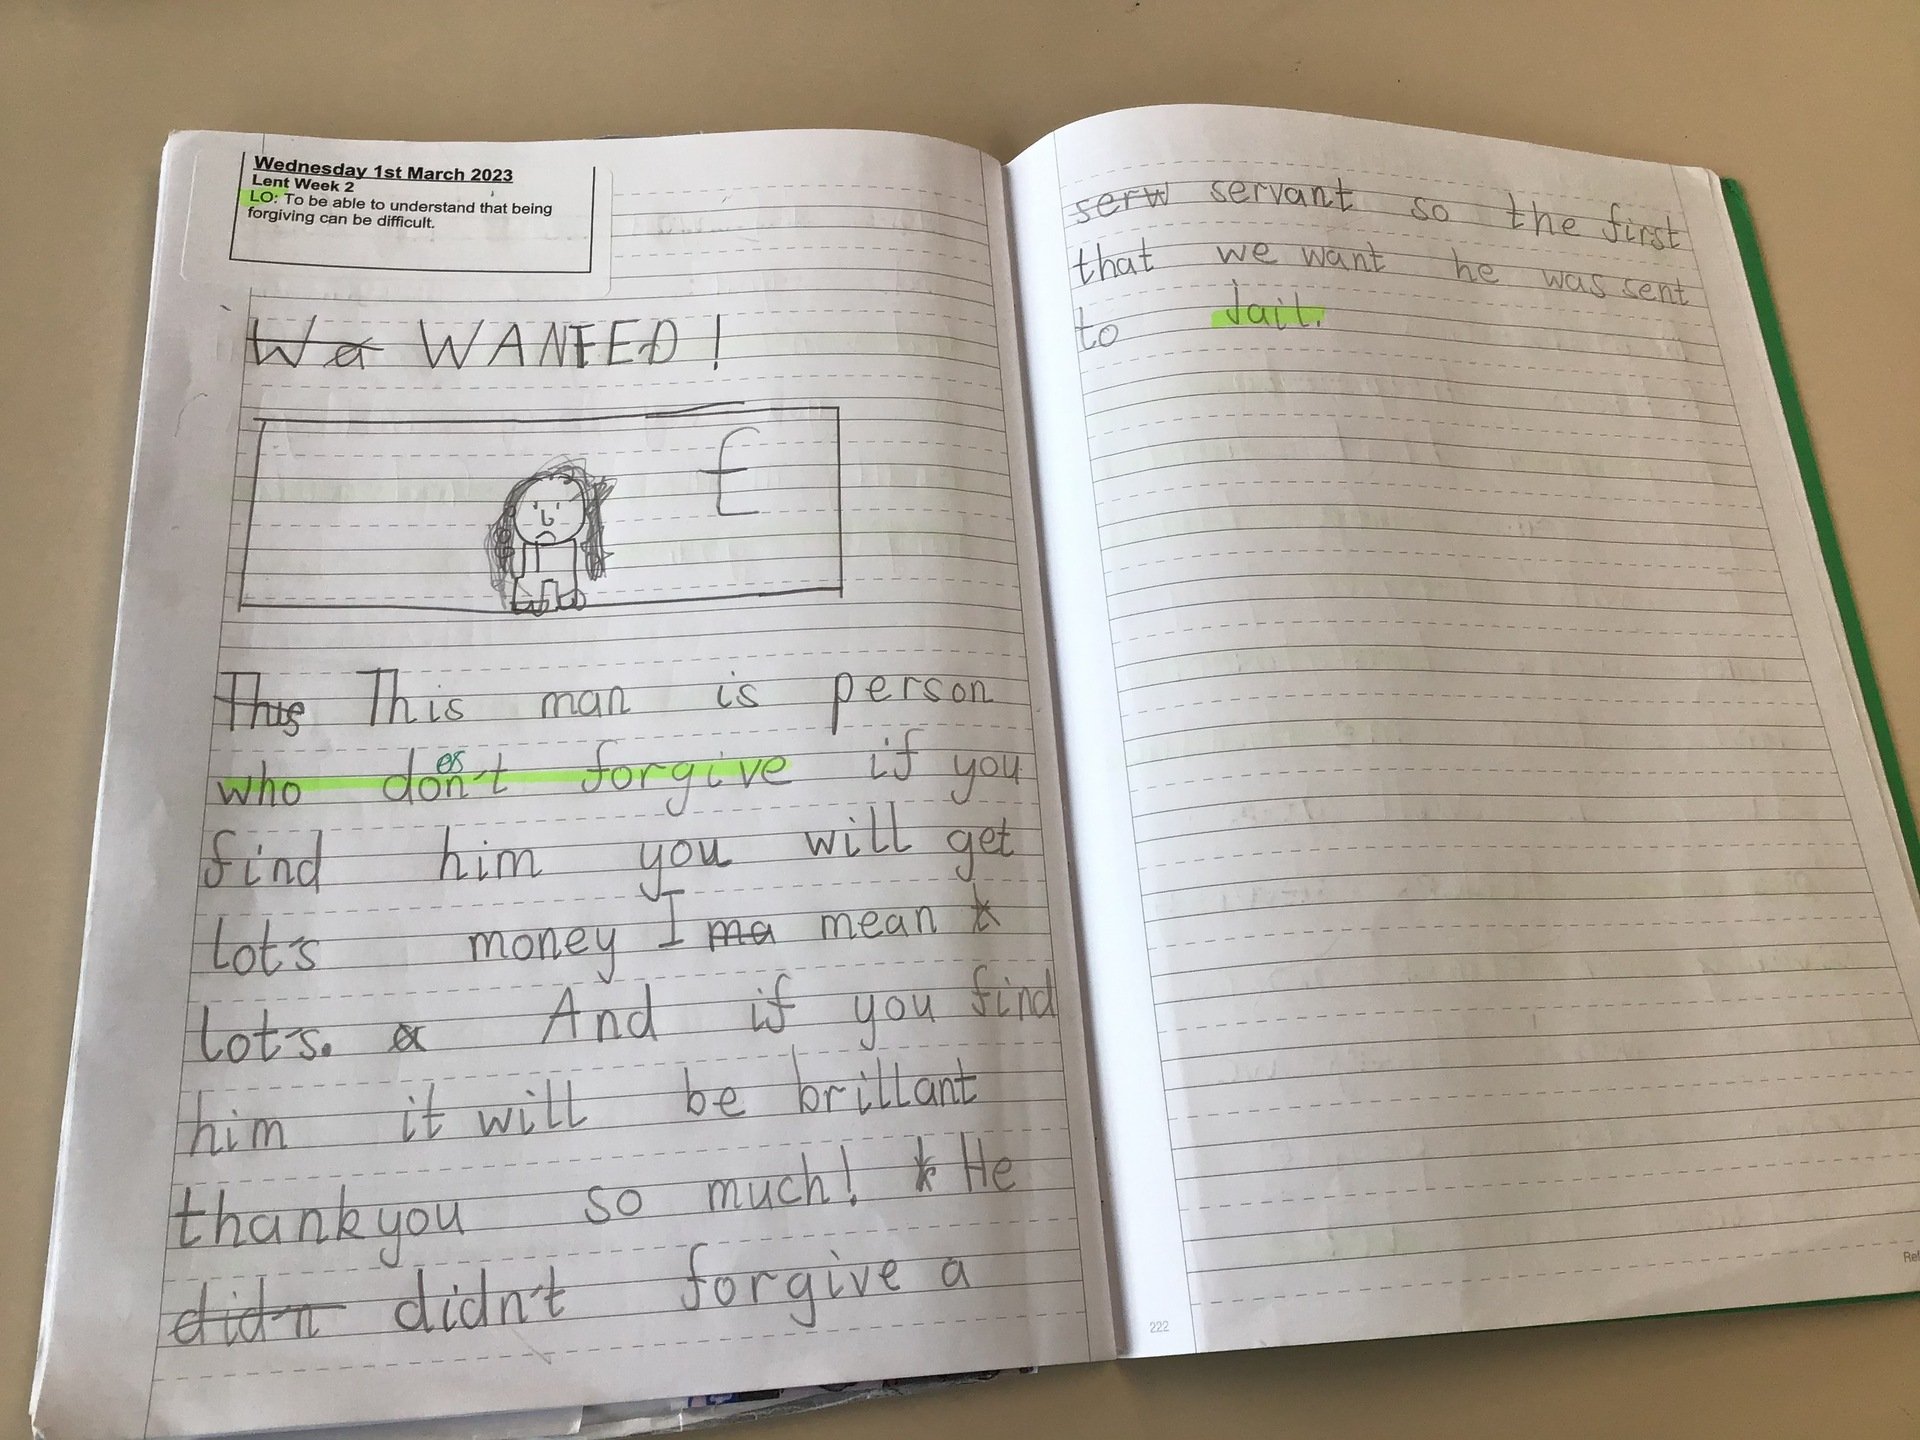 Wednesday 1st March 2023
Lent Week 2
LO: To be able to understand that being
forgiving can be difficult.
Wa WANTED!
£
This This man is person
who doesn't forgive if you
find him you will get
lot's money I ma mean
lot's. a And if you find
him it will be brillant
thankyou so much! He
didn didn't forgive a
serw servant so the first
that we want he was sent
to Jail.
222